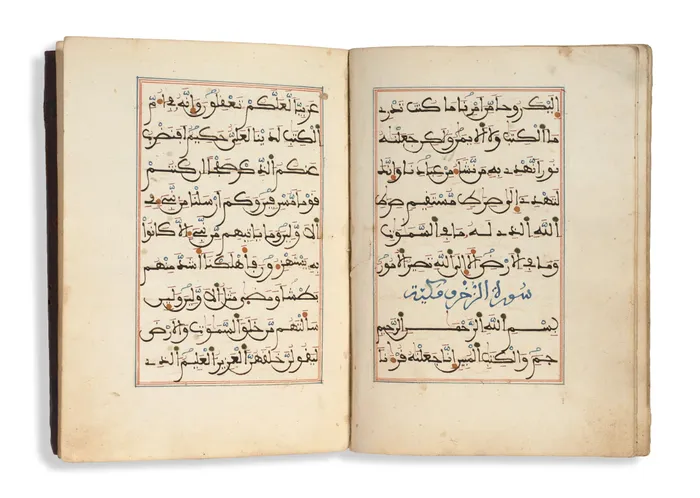 إليك روحا من امرنا ما كنت تدرى
ما الكتب ولا الايمن ولكن جعلنه
نورا نهدى به من نشاء من عبادنا وإنك
لتهدى إلى صرط مستقيم صرط
الله الذى له ما فى السموت
وما فى الارض ألا إلى الله تصير الامور
سورة الزخرف مكية
بسم الله الرحمن الرحيم
حم والكتب المبين إنا جعلنه قرءنا
عربيا لعلكم تعقلون وإنه فى أم
الكتب لدينا لعلى حكيم أفنضرب
عنكم الذكر صفحا ان كنتم
قوما مسرفين وكم أرسلنا من نبىء فى
الاولين وما ياتيهم من نبىء الا كانوا
به يستهزءون فأهلكنا أشد منهم
بطشا ومضى مثل الاولين ولئن
سألتهم من خلق السموت والارض
ليقولن خلقهن العزيز العليم الذى